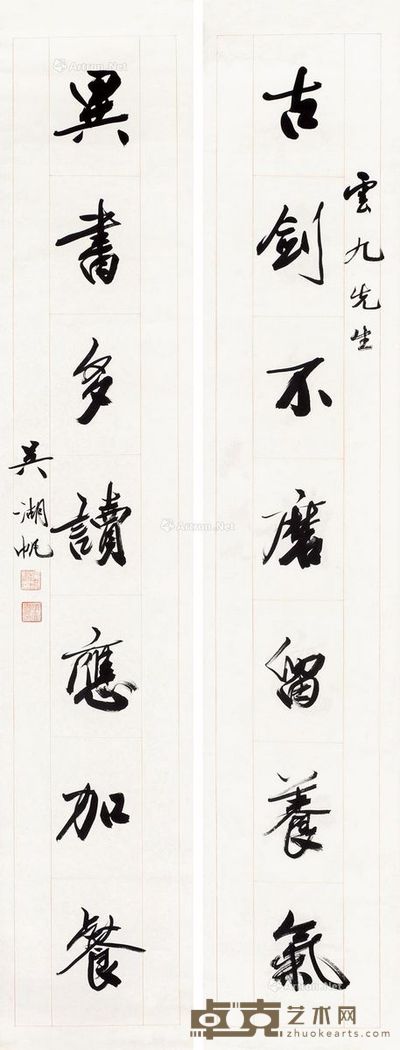 雲九先生
古劍不磨留養氣
異書多讀應加餐
吴湖帆
Artron.Net
Artron.Net
卓克艺术网
zhuokearts.com